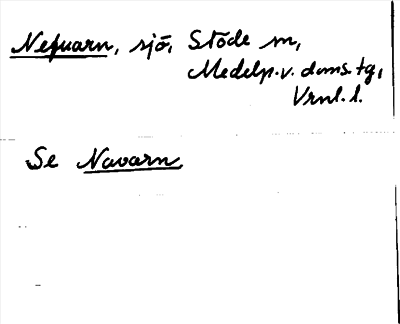 Nefuarn, sjö, Stöde sn,
Medelp. v. doms. tg,
Vrnl. l.
Se Navarn